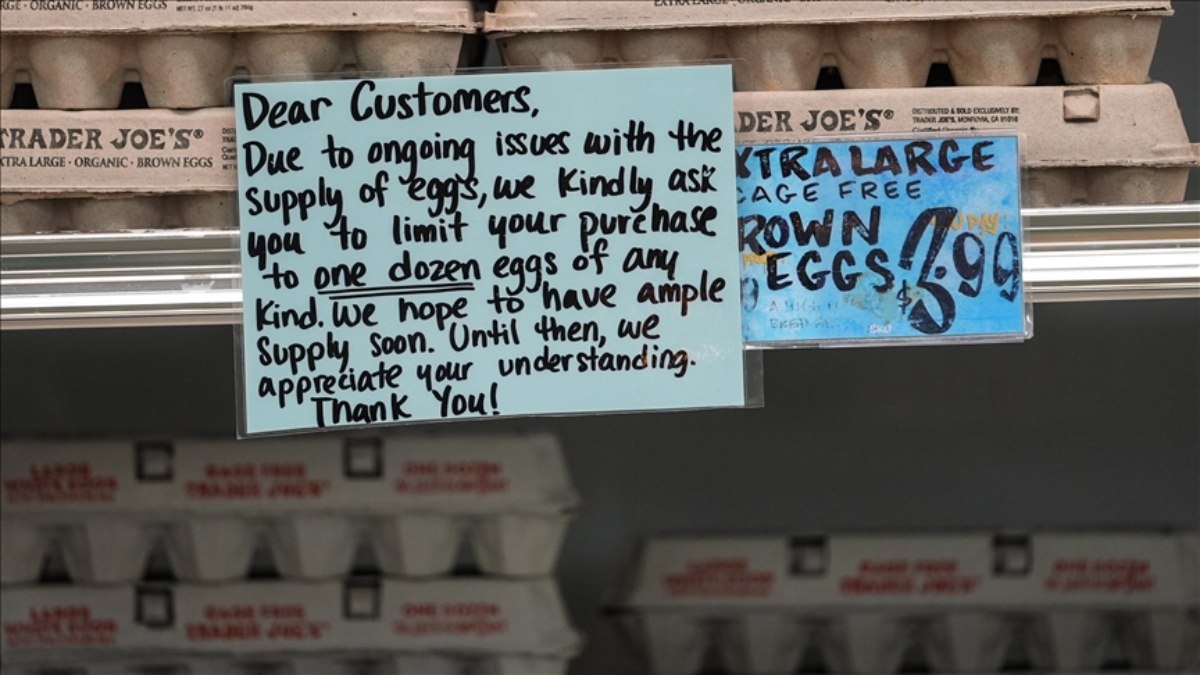 RGE · ORGANIC · BROWN EGGS
EXTRA LARGE · ORGANIC
TRADER JOE'S®
XTRA LARGE · ORGANIC · BROWN EGGS
DER JOE'S®
DISTRIBUTED & SOLD EXCLUSIVELY BY:
TRADER JOE'S, MONROVIA, CA 91016
Dear Customers,
Due to ongoing issues with the
supply of eggs, we kindly ask
you to limit your purchase
to one dozen eggs of any
kind. We hope to have ample
supply soon. Until then, we
appreciate your understanding.
Thank You!
XTRA LARGE
CAGE FREE
ROWN
EGGS
$3.99
SKU
LARGE
CAGE FREE
TRADER JOE'S
ONE DOZEN
LARGE
CAGE FREE
TRADER JOE'S
ONE DOZEN
CAGE FREE
TRADER JOE'S